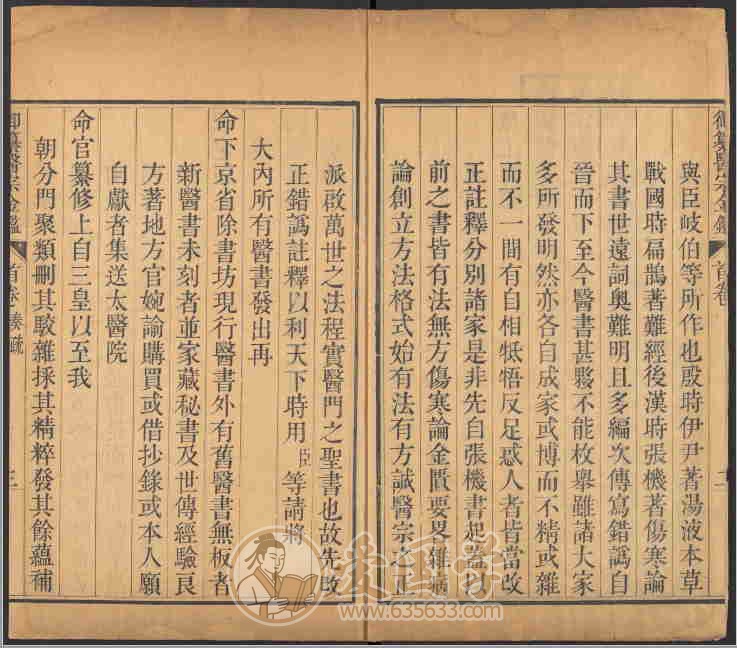 御纂醫宗金鑑
首卷
二
與臣岐伯等所作也殷時伊尹著湯液本草
戰國時扁鵲著難經後漢時張機著傷寒論
其書世遠詞奧難明且多編次傳寫錯譌自
晉而下至今醫書甚夥不能枚舉雖諸大家
多所發明然亦各自成家或博而不精或雜
而不一間有自相牴牾反足惑人者皆當改
正註釋分別諸家是非先自張機書起蓋以
前之書皆有法無方傷寒論金匱要畧雜病
論創立方法格式始有法有方誠醫宗之正
派啟萬世之法程實醫門之聖書也故先改
正錯譌註釋以利天下時用臣等請將
大內所有醫書發出再
命下京省除書坊現行醫書外有舊醫書無板者
新醫書未刻者並家藏秘書及世傳經驗良
方著地方官婉諭購買或借抄錄或本人願
自獻者集送太醫院
命官纂修上自三皇以至我
朝分門聚類刪其駁雜採其精粹發其餘蘊補
御纂醫宗金鑑
首卷 奏疏
三
爱国学
www.635633.com